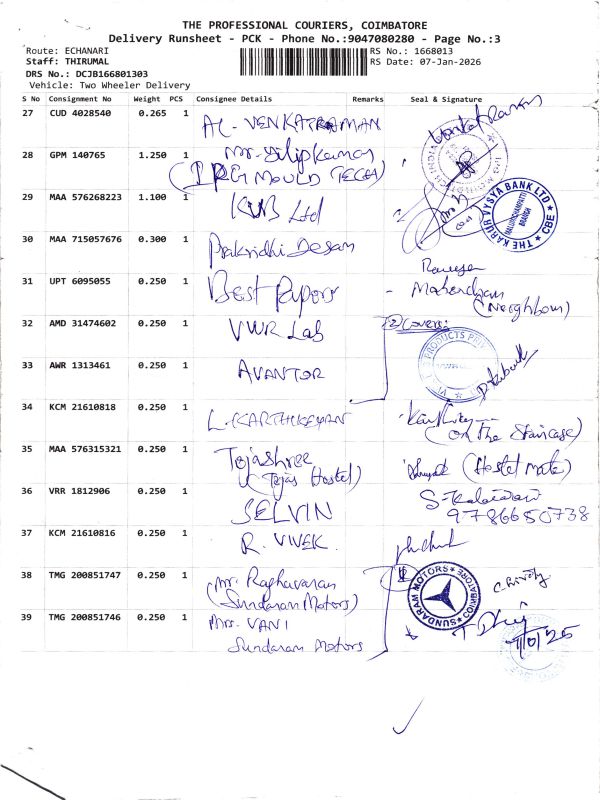 THE PROFESSIONAL COURIERS, COIMBATORE
Delivery Runsheet - PCK - Phone No.:9047080280 - Page No.:3
Route: ECHANARI RS No.: 1668013
Staff: THIRUMAL RS Date: 07-Jan-2026
DRS No.: DCJB166801303
Vehicle: Two Wheeler Delivery
S No Consignment No Weight PCS Consignee Details Remarks Seal & Signature
27 CUD 4028540 0.265 1 AL-VENKATRAMAN
28 GPM 140765 1.250 1 Mr. Dilipkumar
MOULD TECH)
29 MAA 576268223 1.100 1 KVB Ltd
THE KARUR VYSYA BANK LTD CBE
BRANCH
30 MAA 715057676 0.300 1 Desam
31 UPT 6095055 0.250 1 Best Papers - Mahendran
(Neighbour)
32 AMD 31474602 0.250 1 VWR Lab 2 Covers
PRODUCTS
33 AWR 1313461 0.250 1 AVANTOR
34 KCM 21610818 0.250 1 L. KARTHIKEYAN
(on the Staircase)
35 MAA 576315321 0.250 1 Tejashree (Hostel mate)
(Tejas Hostel)
36 VRR 1812906 0.250 1 SELVIN S-Kalaivani
9786650738
37 KCM 21610816 0.250 1 R. VIVEK
38 TMG 200851747 0.250 1 Mr. Raghavaran
(Sundaram Motors)
SUNDARAM MOTORS COIMBATORE
39 TMG 200851746 0.250 1 Mrs. VANI
Sundaram Motors